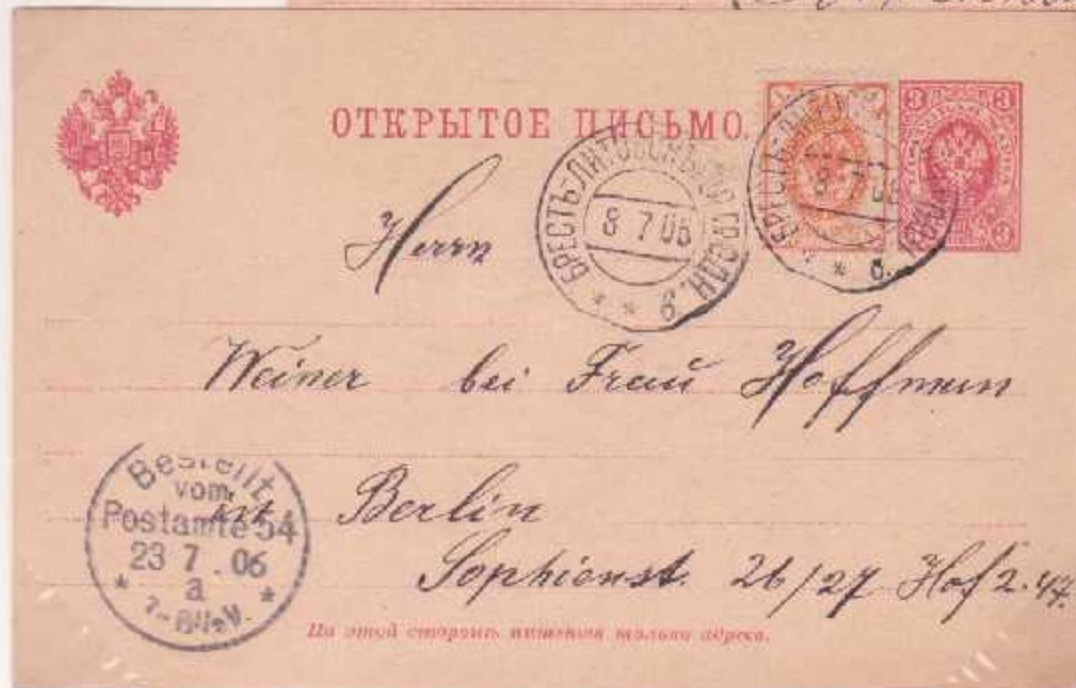 ОТКРЫТОЕ ПИСЬМО.
3 3
БРЕСТЪ-ЛИТОВСКЪ ГОРОДН.
8 7 06
* * б.
БРЕСТЪ-ЛИТ
8 7 06
* б.
3
Herrn
Weiner bei Frau Hoffmann
in Berlin
Sophienst. 26/27 Hof 2.
Bestellt
vom
Postamte 54
23 7. 06
a
* 7-8¼V. *
На этой сторонѣ пишется только адресъ.